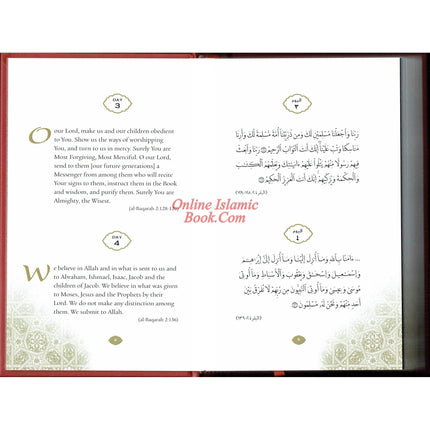 DAY
3
O our Lord, make us and our children obedient
to You. Show us the ways of worshipping
You, and turn to us in mercy. Surely You are
Most Forgiving, Most Merciful. O our Lord,
send to them [our future generations] a
Messenger from among them who will recite
Your signs to them, instruct them in the Book
and wisdom, and purify them. Surely You are
Almighty, the Wisest.
(al-Baqarah 2:128-
DAY
4
We believe in Allah and in what is sent to us and
to Abraham, Ishmael, Isaac, Jacob and
the children of Jacob. We believe what was given
to Moses, Jesus and the Prophets by their
Lord. We do not make any distinction among
them. We submit to Allah.
(al-Baqarah 2:136)
اليوم
٣
رَبَّنَا وَاجْعَلْنَا مُسْلِمَيْنِ لَكَ وَمِن ذُرِّيَّتِنَا أُمَّةً مُّسْلِمَةً لَّكَ وَأَرِنَا
مَنَاسِكَنَا وَتُبْ عَلَيْنَا إِنَّكَ أَنتَ التَّوَّابُ الرَّحِيمُ رَبَّنَا وَابْعَثْ
فِيهِمْ رَسُولًا مِّنْهُمْ يَتْلُوا عَلَيْهِمْ ءَايَٰتِكَ وَيُعَلِّمُهُمُ الْكِتَٰبَ
وَالْحِكْمَةَ وَيُزَكِّيهِمْ إِنَّكَ أَنتَ الْعَزِيزُ الْحَكِيمُ
اليوم
٤
... ءَامَنَّا بِاللَّهِ وَمَا أُنزِلَ إِلَيْنَا وَمَا أُنزِلَ إِلَىٰ إِبْرَٰهِيمَ
وَإِسْمَٰعِيلَ وَإِسْحَٰقَ وَيَعْقُوبَ وَالْأَسْبَاطِ وَمَا أُوتِيَ
مُوسَىٰ وَعِيسَىٰ وَمَا أُوتِيَ النَّبِيُّونَ مِن رَّبِّهِمْ لَا نُفَرِّقُ بَيْنَ
أَحَدٍ مِّنْهُمْ وَنَحْنُ لَهُ مُسْلِمُونَ
Online Islamic
Book.Com